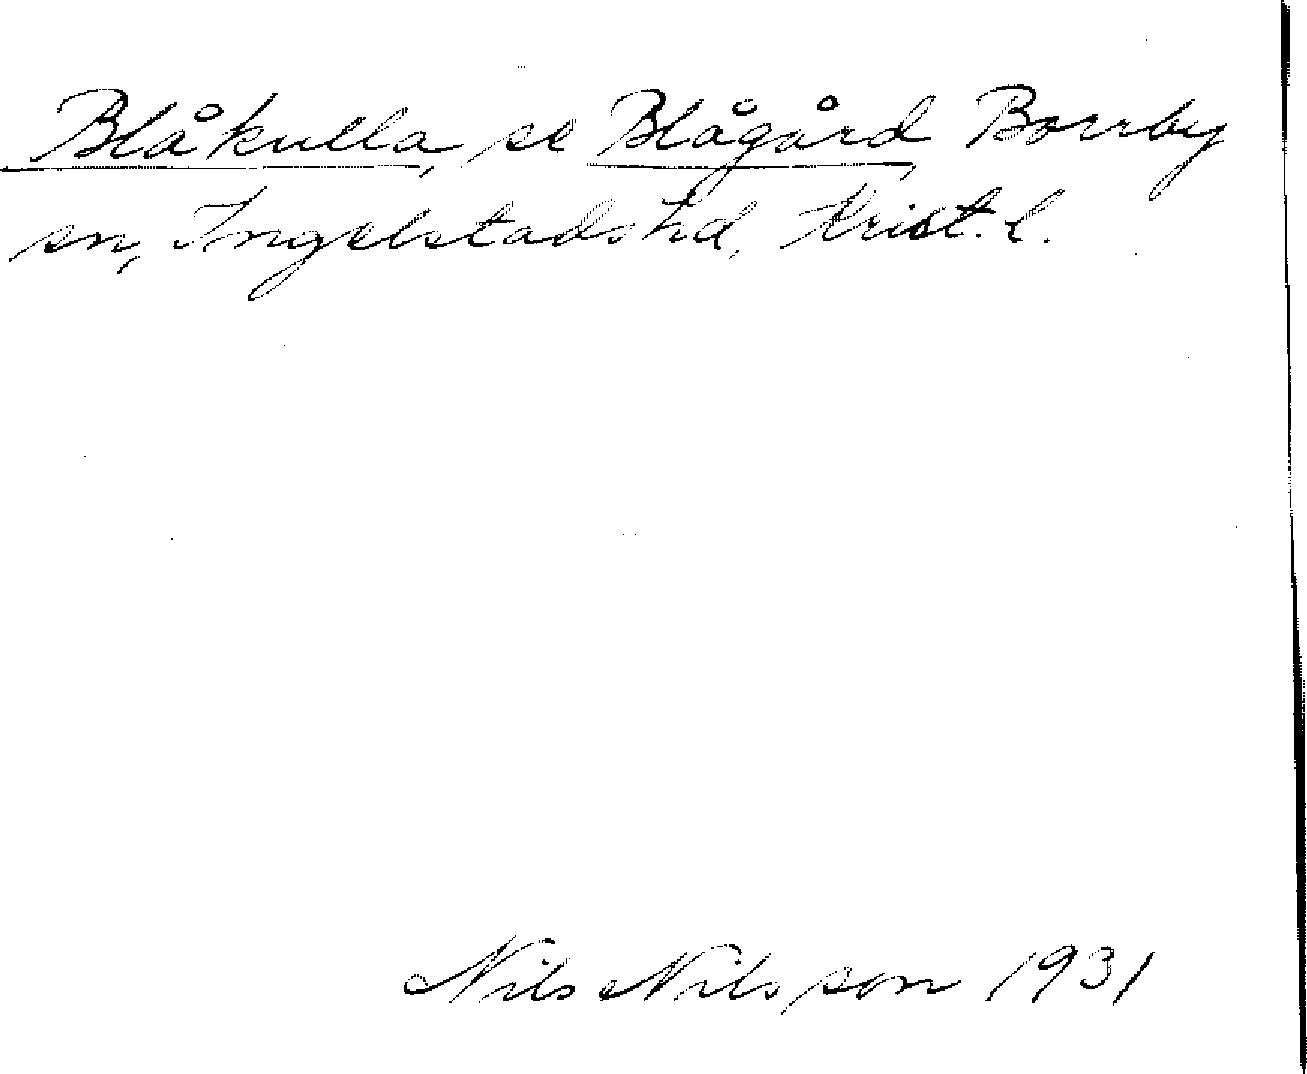 Blåkulla, se Blågård, Borrby
sn, Ingelstads hd, Krist. l.
Nils Nilsson 1931